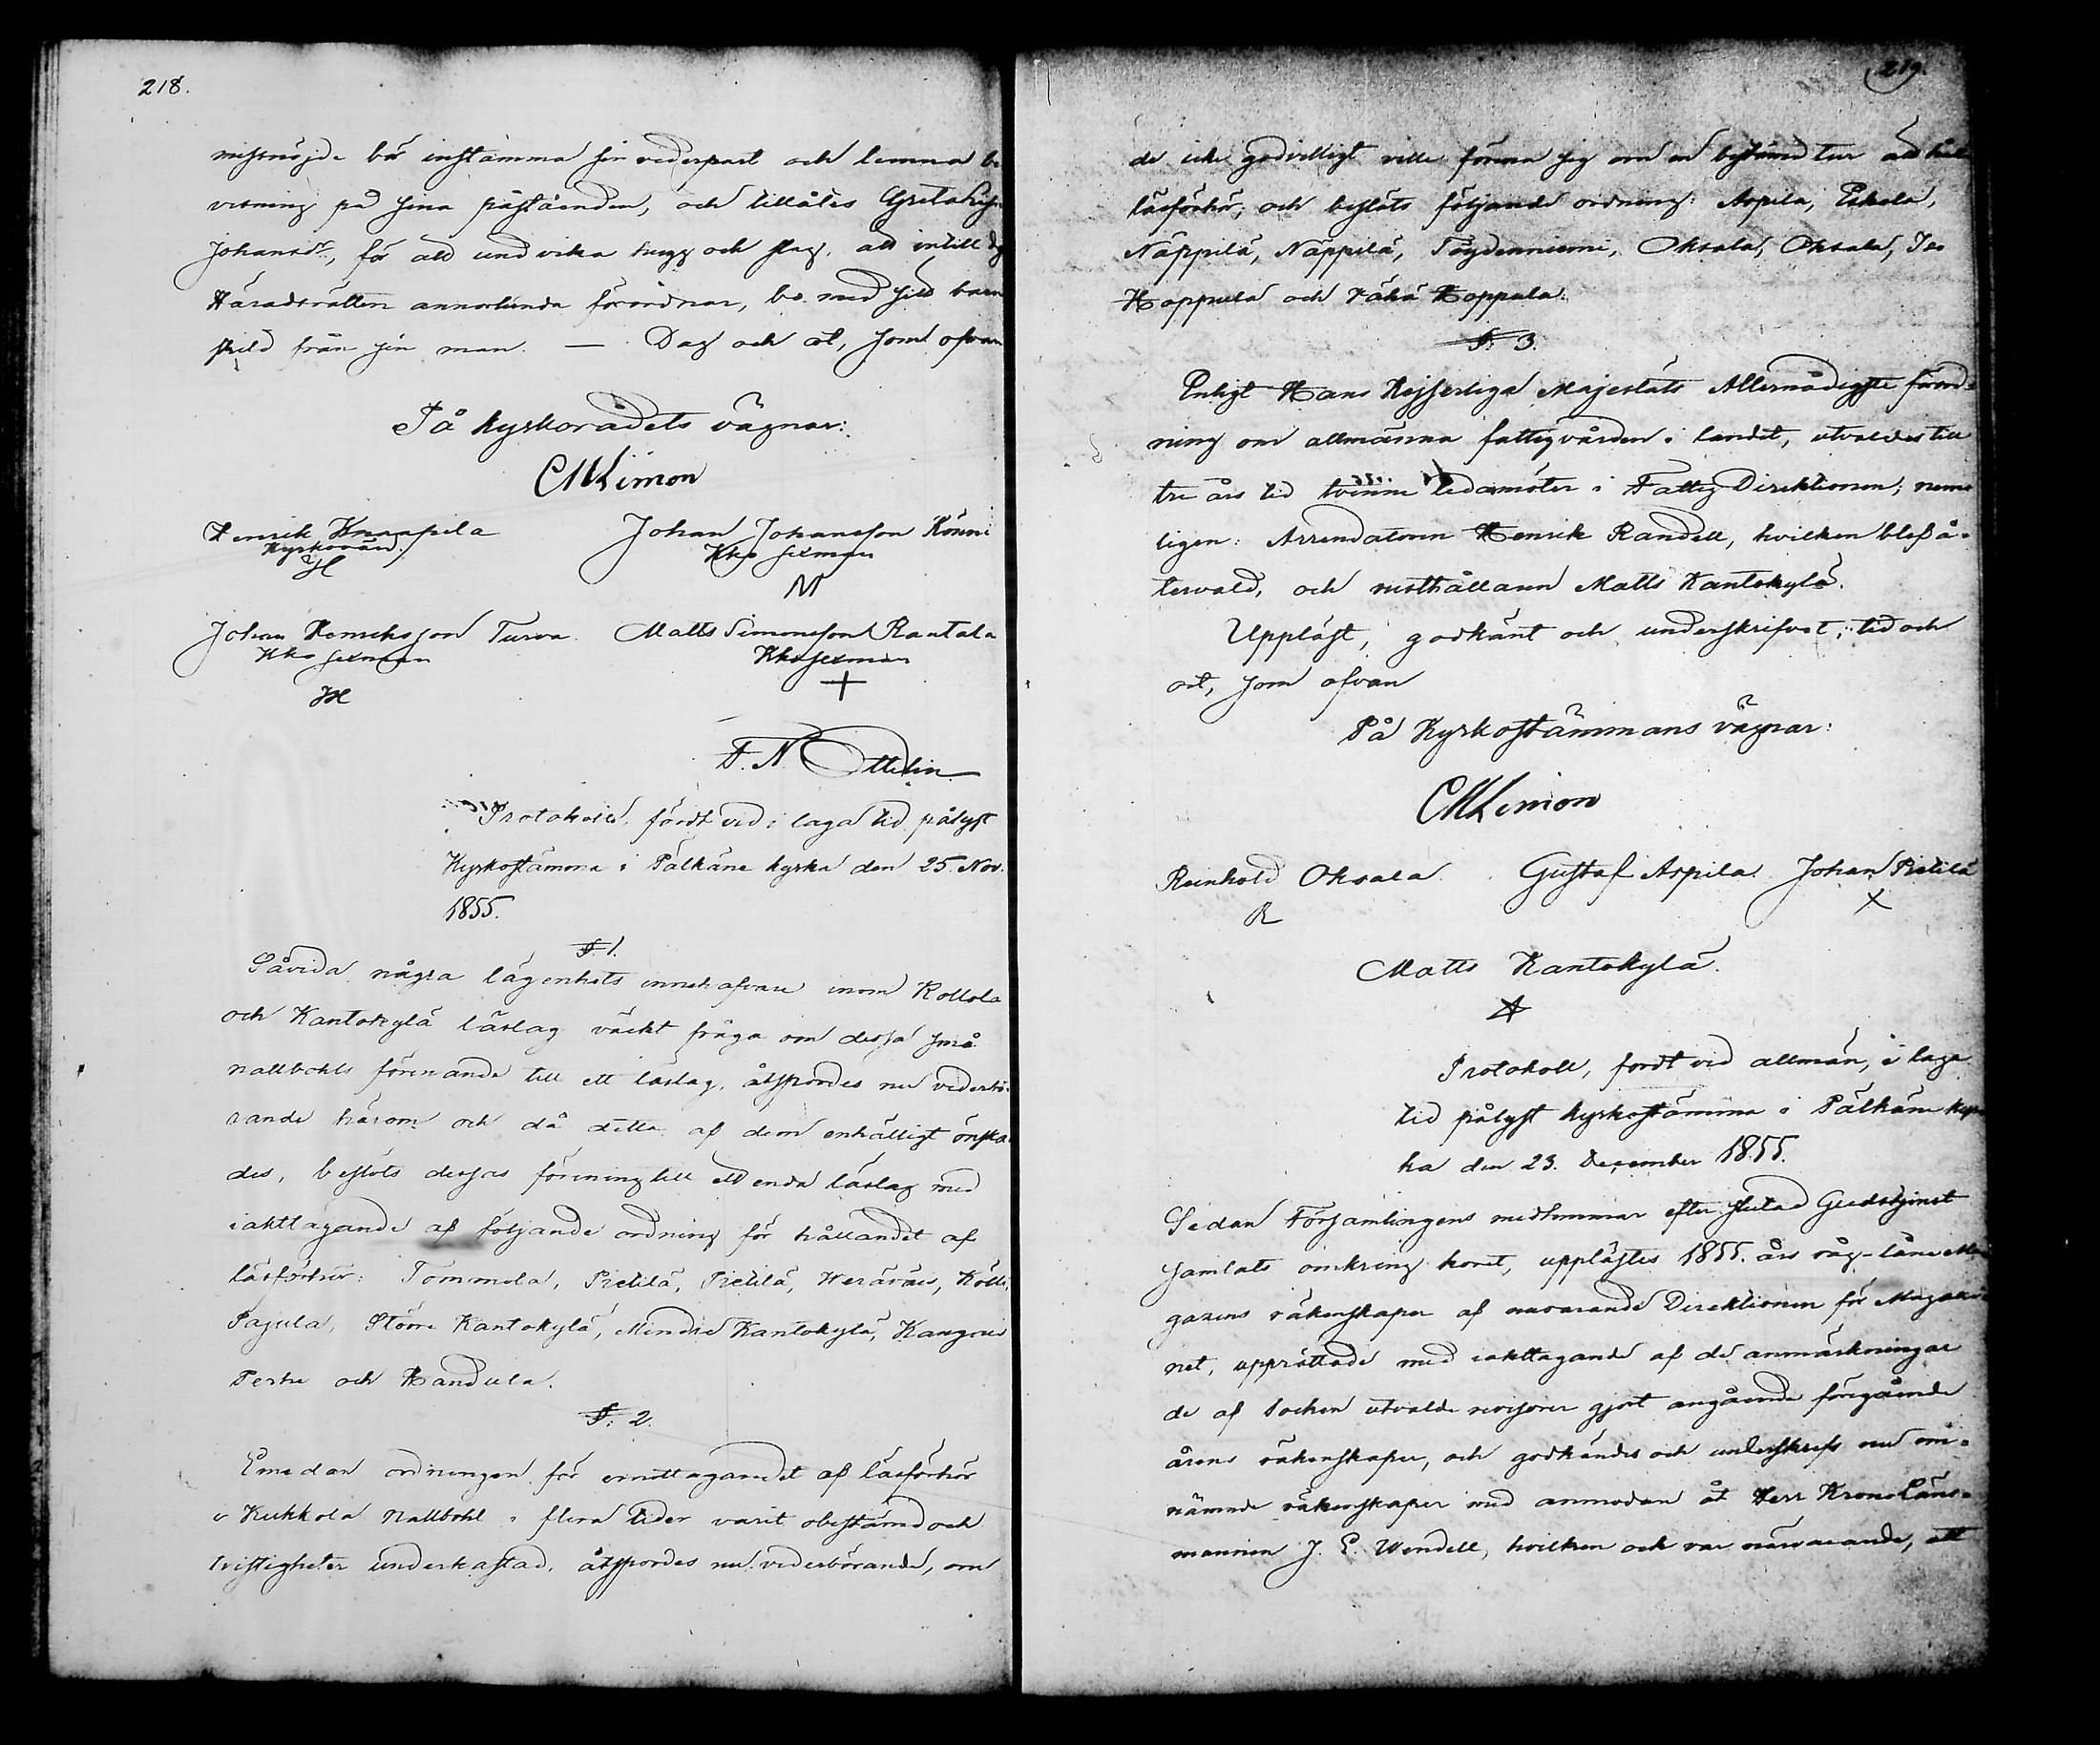 218.
missnöjde bör instämma sin vederpart och lemna be
visning på sina påståenden, och tillåtes Greta
Johansdr, för att undvika hugg och slag, att intill dess
Häradsrätten annorlunda förordnar, bo med sitt barn
skild från sin man. — Dag och ort, som ofvan
På kyrkorådets vägnar:
CMLimon
Henrik Knaapila Johan Johansson Könni
Kyrkovärd. Kko sexman
H M
Johan Henriksson Turva. Matts Simonsson Rantala
Kko sexman Kko sexman
JH +
F. N. Ottelin
Protokoll, fördt vid i laga tid pålyst
Kyrkostämma i Pälkäne kyrka den 25. Nov.
1855.
§. 1.
Såvida några lägenhets innehafvare inom Rottola
och Kantokylä läslag väckt fråga om dessa små
nattbohls förenande till ett läslag, åtspordes nu vederbö-
rande härom och då detta af dem enhälligt önska-
des, beslöts dessas förening till ett enda läslag med
iakttagande af följande ordning för hållandet af
läsförhör: Tommola, Pietilä, Pietilä, Weräväis, Kölli,
Pajula, Större Kantokylä, Mindre Kantokylä, Kangois
Perhe och Handula.
§. 2.
Emedan ordningen för emottagandet af läsförhör
i Kukkola Nattbohl i flera tider varit obestämd och
tvistigheter underkastad, åtspordes nu vederbörande, om
219.
de icke godvilligt ville förena sig om en bestämd tur att hålla
läsförhör, och beslöts följande ordning: Arpila, Eskola,
Näppilä, Näppilä, Töydenniemi, Oksala, Oksala, Iso
Hoppula och Vähä Hoppula.
§. 3.
Enligt Hans Kejserliga Majestäts Allernådigste förord-
ning om allmänna fattigvården i landet, utvaldes till
tre års tid tvänne ledamöter i Fattig Direktionen; nem-
ligen: Arrendatorn Henrik Randell, hvilken blef å-
tervald, och rusthållaren Matts Kantokylä.
Uppläst, godkänt och underskrifvet; tid och
ort, som ofvan
På Kyrkostämmans vägnar:
CMLimon
Reinhold Oksala. Gustaf Arpila. Johan Pietilä
R X
Matts Kantokylä.
Protokoll, fördt vid allmän, i laga
tid pålyst kyrkostämma i Pälkäne kyr-
ka den 23. December 1855.
Sedan Församlingens medlemmar efter slutad Gudstjenst
samlats omkring koret, upplästes 1855. års råg-låne Ma-
gazins räkenskaper af nuvarande Direktionen för Magazi-
net, upprättade med iakttagande af de anmärkningar
de af Socken utvalde revisorer gjort angående föregående
årens räkenskaper, och godkändes och underskrefs nu om-
nämnde räkenskaper med anmodan åt Herr Kronoläns-
mannen J. E. Wendell, hvilken ock var närvarande, att